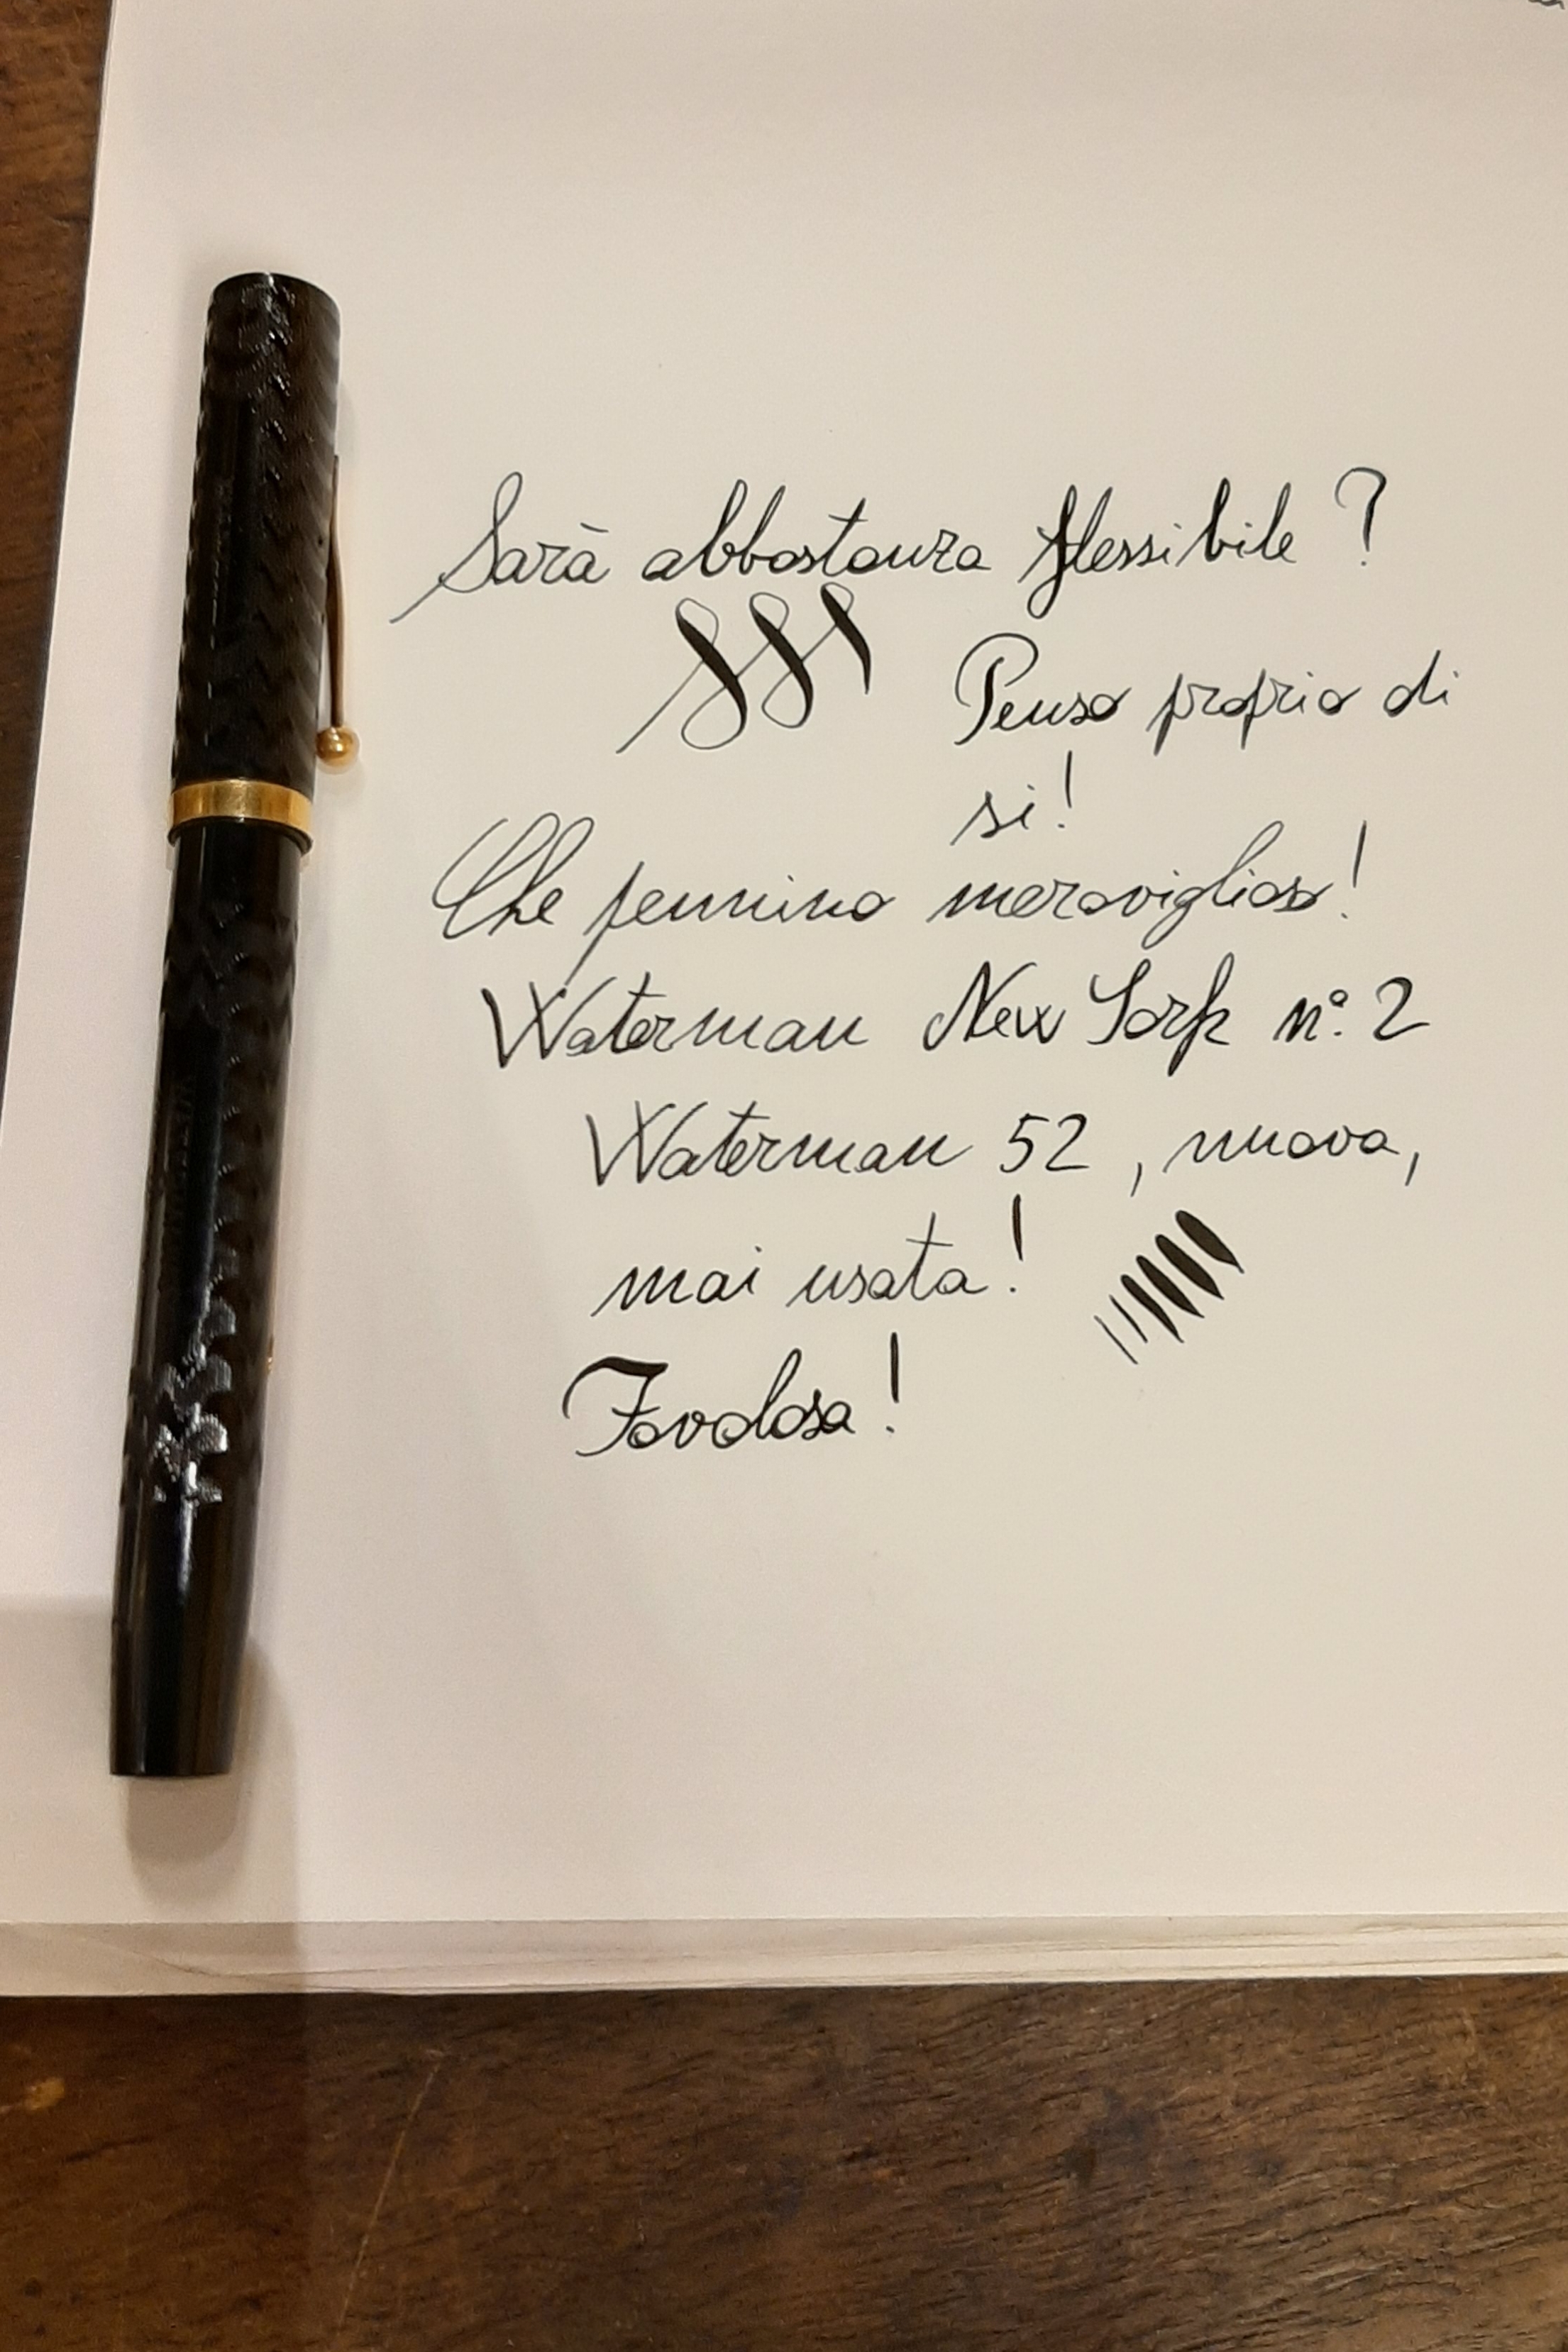 Sarà abbastanza flessibile?
Penso proprio di
si!
Che pennino meraviglioso!
Waterman New York n°. 2
Waterman 52, nuova,
mai usata!
Favolosa!